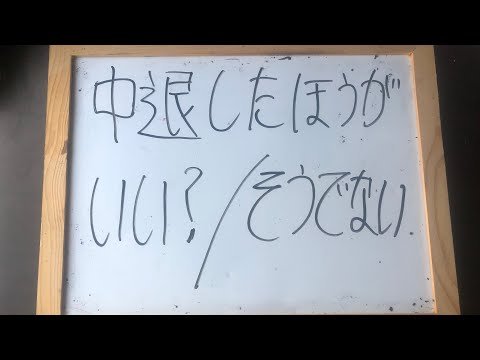 中退したほうが
いい?/そうでない.